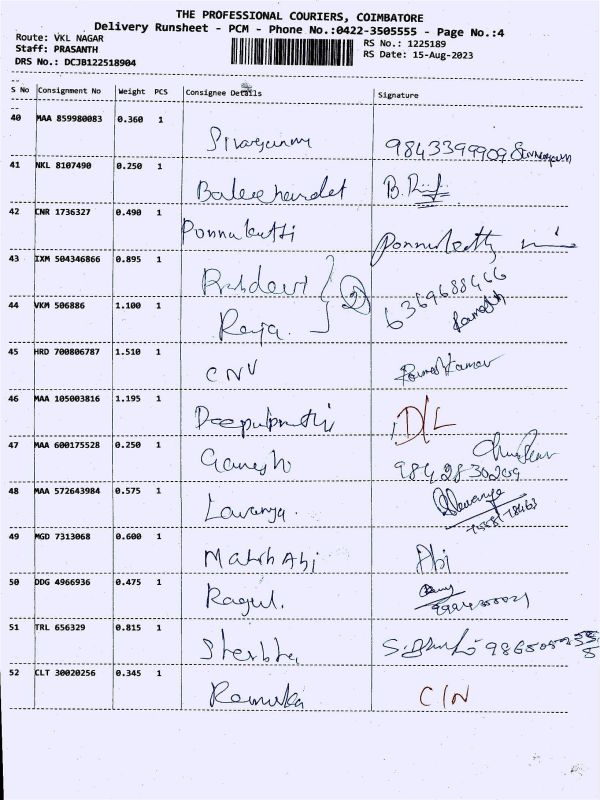 THE PROFESSIONAL COURIERS, COIMBATORE
Delivery Runsheet - PCM - Phone No.:0422-3505555 - Page No.:4
Route: VKL NAGAR
Staff: PRASANTH
DRS No.: DCJB122518904
RS No.: 1225189
RS Date: 15-Aug-2023
S No Consignment No Weight PCS Consignee Details Signature
40 MAA 859980083 0.360 1
9843399909
41 NKL 8107490 0.250 1
Balachandet B.
42 CNR 1736327 0.490 1
Ponnukutti Ponnukutty
43 IXM 504346866 0.895 1
2
44 VKM 506886 1.100 1
Raja. 6369688466 Ramesh
45 HRD 700806787 1.510 1
CNV Rameshkumar
46 MAA 105003816 1.195 1
D/L
47 MAA 600175528 0.250 1
Ganesh 9842830209
48 MAA 572643984 0.575 1
Lavanya. Lavanya
49 MGD 7313068 0.600 1
Abi Abi
50 DDG 4966936 0.475 1
Ragul.
51 TRL 656329 0.815 1
52 CLT 30020256 0.345 1
Ramuka C/N